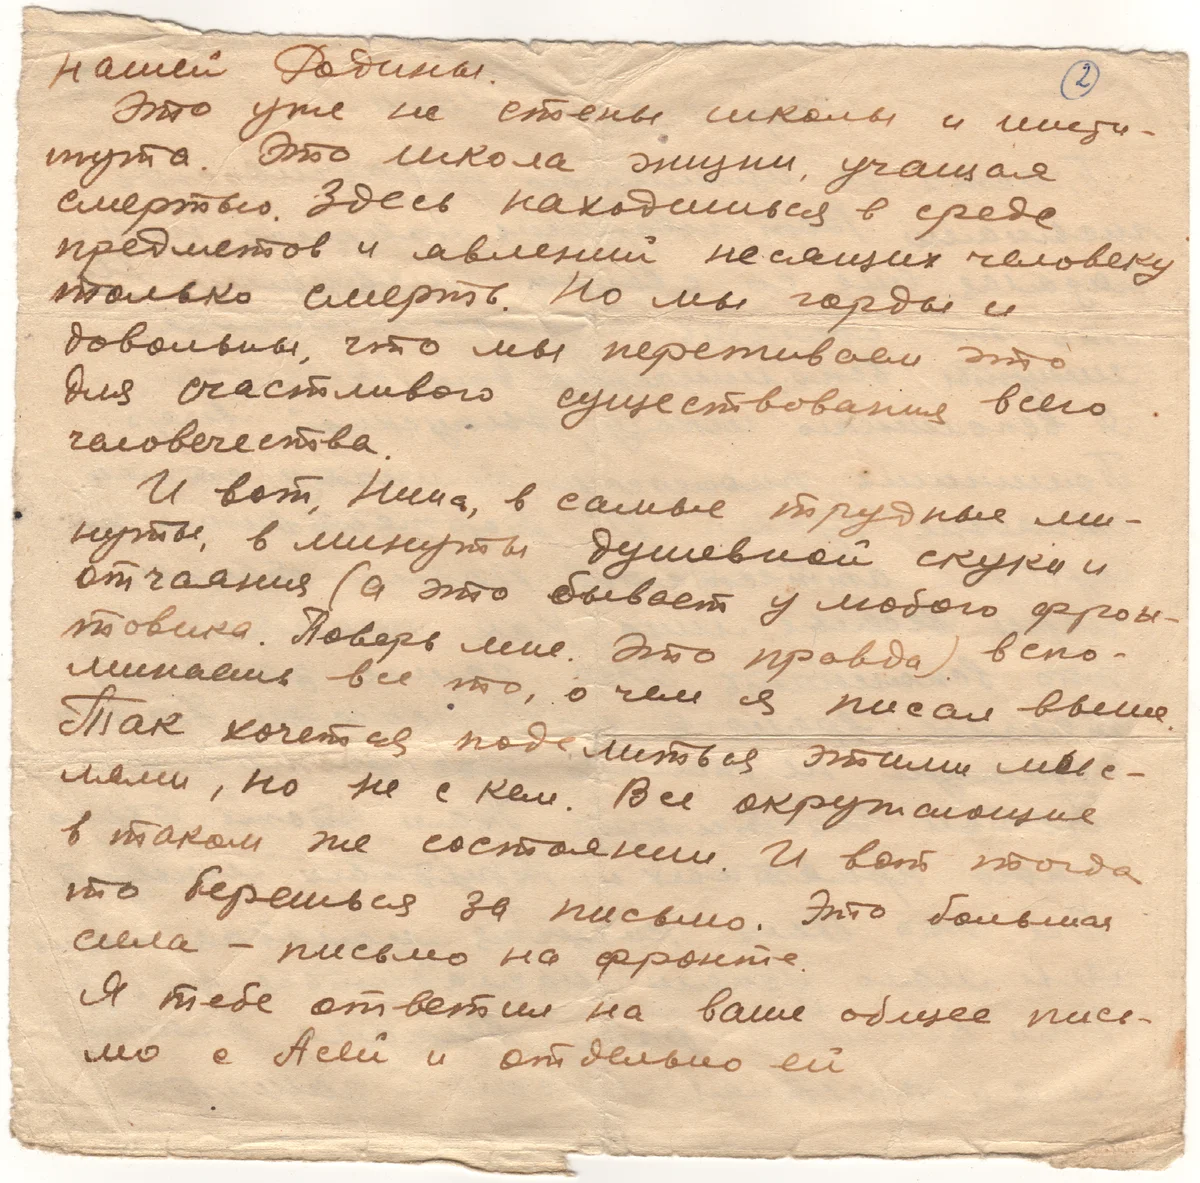 нашей Родины.
2
Это уже не стены школы и инсти-
тута. Это школа жизни, учащая
смертью. Здесь находишься в среде
предметов и явлений несящих человеку
только смерть. Но мы горды и
довольны, что мы переживаем это
для счастливого существования всего
человечества.
И вот, Нина, в самые трудные ми-
нуты, в минуты душевной скуки и
отчаяния (а это бывает у любого фрон-
товика. Поверь мне. Это правда) вспо-
минаешь все то, о чем я писал выше.
Так хочется поделиться этими мыс-
лями, но не с кем. Все окружающие
в таком же состоянии. И вот тогда
то берешься за письмо. Это большая
сила – письмо на фронте.
Я тебе ответил на ваше общее пись-
мо с Асей и отдельно ей